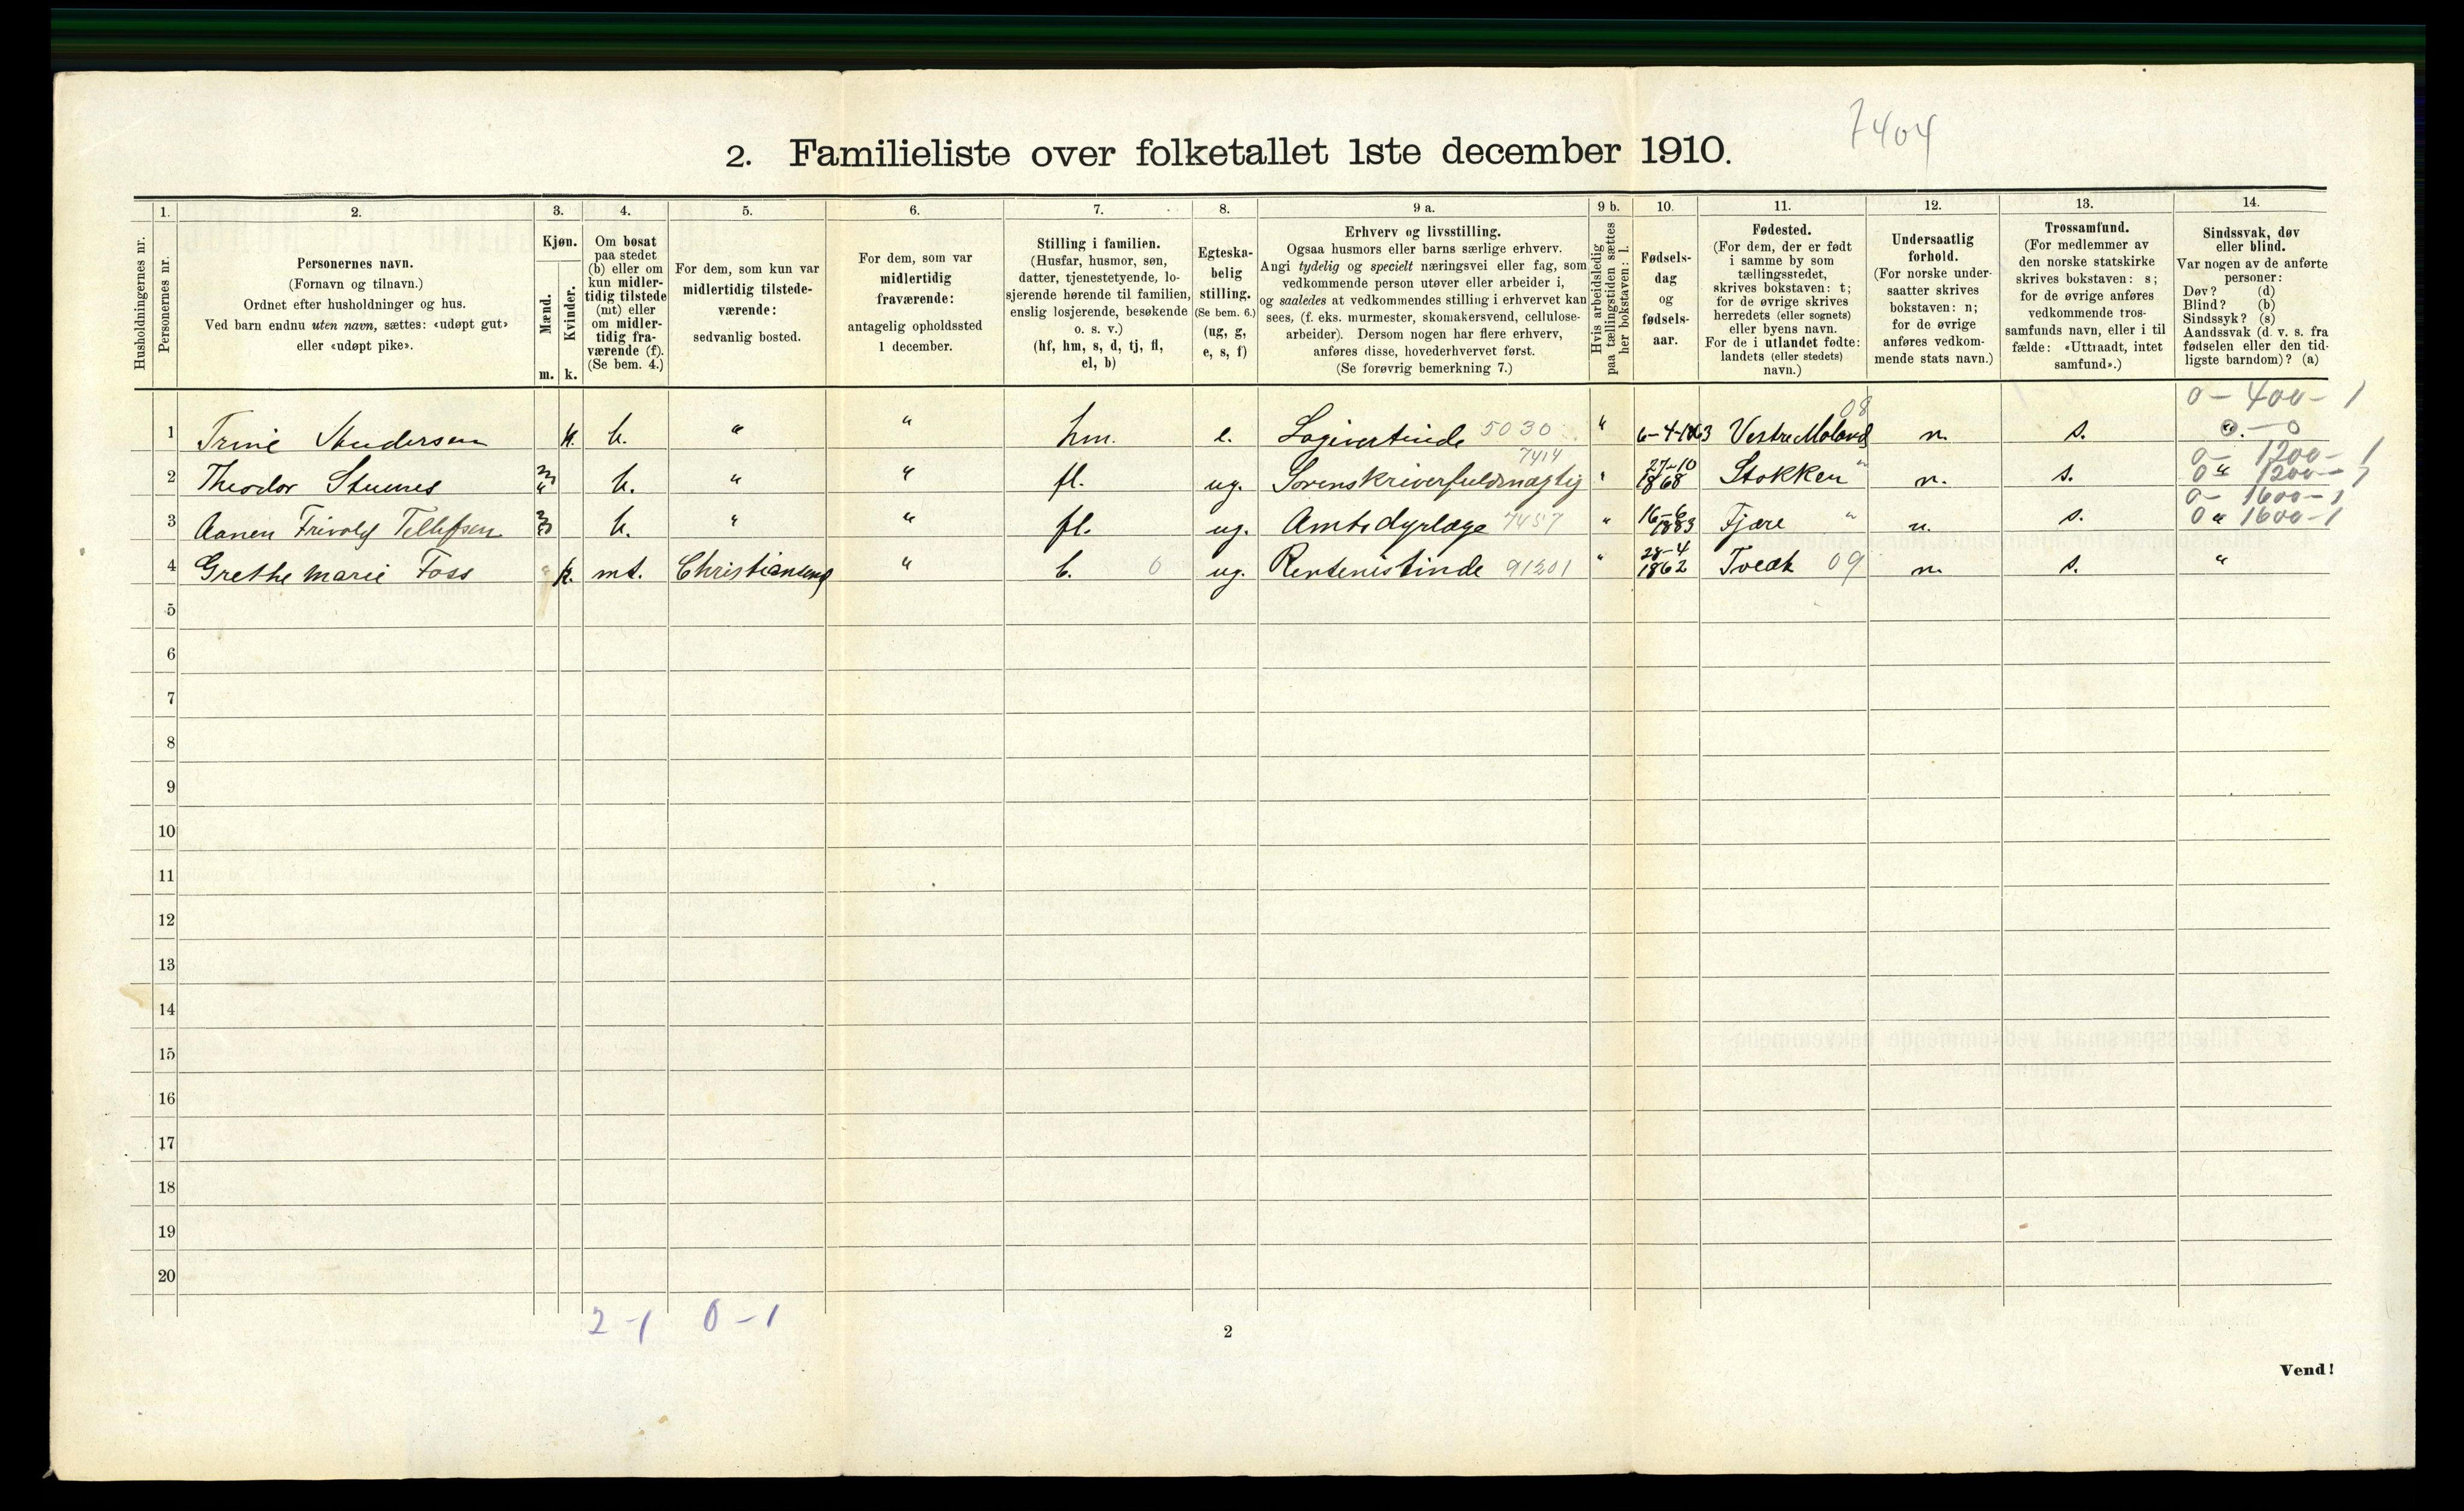 7404
2. Familieliste over folketallet 1ste december 1910.
1. 2. 3. 4. 5. 6. 7. 8. 9 a. 9 b. 10. 11. 12. 13. 14.
Husholdningernes nr.
Personernes nr.
Personernes navn.
(Fornavn og tilnavn.)
Ordnet efter husholdninger og hus.
Ved barn endnu uten navn, sættes: «udøpt gut»
eller «udøpt pike».
Kjøn.
Mænd.
Kvinder.
m. k.
Om bosat
paa stedet
(b) eller om
kun midler-
tidig tilstede
(mt) eller
om midler-
tidig fra-
værende (f).
(Se bem. 4.)
For dem, som kun var
midlertidig tilstede-
værende:
sedvanlig bosted.
For dem, som var
midlertidig
fraværende:
antagelig opholdssted
1 december.
Stilling i familien.
(Husfar, husmor, søn,
datter, tjenestetyende, lo-
sjerende hørende til familien,
enslig losjerende, besøkende
o. s. v.)
(hf, hm, s, d, tj, fl,
el, b)
Egteska-
belig
stilling.
(Se bem. 6.)
(ug, g,
e, s, f)
Erhverv og livsstilling.
Ogsaa husmors eller barns særlige erhverv.
Angi tydelig og specielt næringsvei eller fag, som
vedkommende person utøver eller arbeider i,
og saaledes at vedkommendes stilling i erhvervet kan
sees, (f. eks. murmester, skomakersvend, cellulose-
arbeider). Dersom nogen har flere erhverv,
anføres disse, hovederhvervet først.
(Se forøvrig bemerkning 7.)
Hvis arbeidsledig
paa tællingstiden sættes
her bokstaven: l.
Fødsels-
dag
og
fødsels-
aar.
Fødested.
(For dem, der er født
i samme by som
tællingsstedet,
skrives bokstaven: t;
for de øvrige skrives
herredets (eller sognets)
eller byens navn.
For de i utlandet fødte:
landets (eller stedets)
navn.)
Undersaatlig
forhold.
(For norske under-
saatter skrives
bokstaven: n;
for de øvrige
anføres vedkom-
mende stats navn.)
Trossamfund.
(For medlemmer av
den norske statskirke
skrives bokstaven: s;
for de øvrige anføres
vedkommende tros-
samfunds navn, eller i til-
fælde: «Uttraadt, intet
samfund».)
Sindssvak, døv
eller blind.
Var nogen av de anførte
personer:
Døv? (d)
Blind? (b)
Sindssyk? (s)
Aandssvak (d. v. s. fra
fødselen eller den tid-
ligste barndom)? (a)
0 – 400 – 1
1 Trine Andersen k. b. " " hm. e. Logivertinde 5030 " 6-4-1863 Vestre Moland 08 n. s. – 0
7414 0 – 1200 – 1
2 Theodor b. " " fl. ug. Sorenskriverfuldmægtig " 27-10 1868 Stokken " n. s. 0 " 1200 – 1
0 – 1600 – 1
3 Aanen Frivoly Tellefsen b. " " fl. ug. Amtsdyrlæge 7457 " 16-6 1883 Fjære " n. s. 0 " 1600 – 1
4 Grethe Marie Foss k. mt. Christiansund " b. 0 ug. Rentenistinde 91201 " 28-4 1862 Tvedt 09 n. s. "
5
6
7
8
9
10
11
12
13
14
15
16
17
18
19
20
2 – 1 0 – 1
2
Vend!